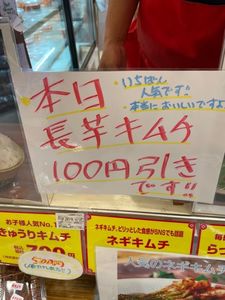 本日
いちばん
人気です!!
本当においしいですよ
長芋キムチ
100円引き
です!!
お子様人気No.1
きゅうりキムチ
ネギキムチ、ピリッとした食感がSNSでも話題
ネギキムチ
人気のネギキムチ